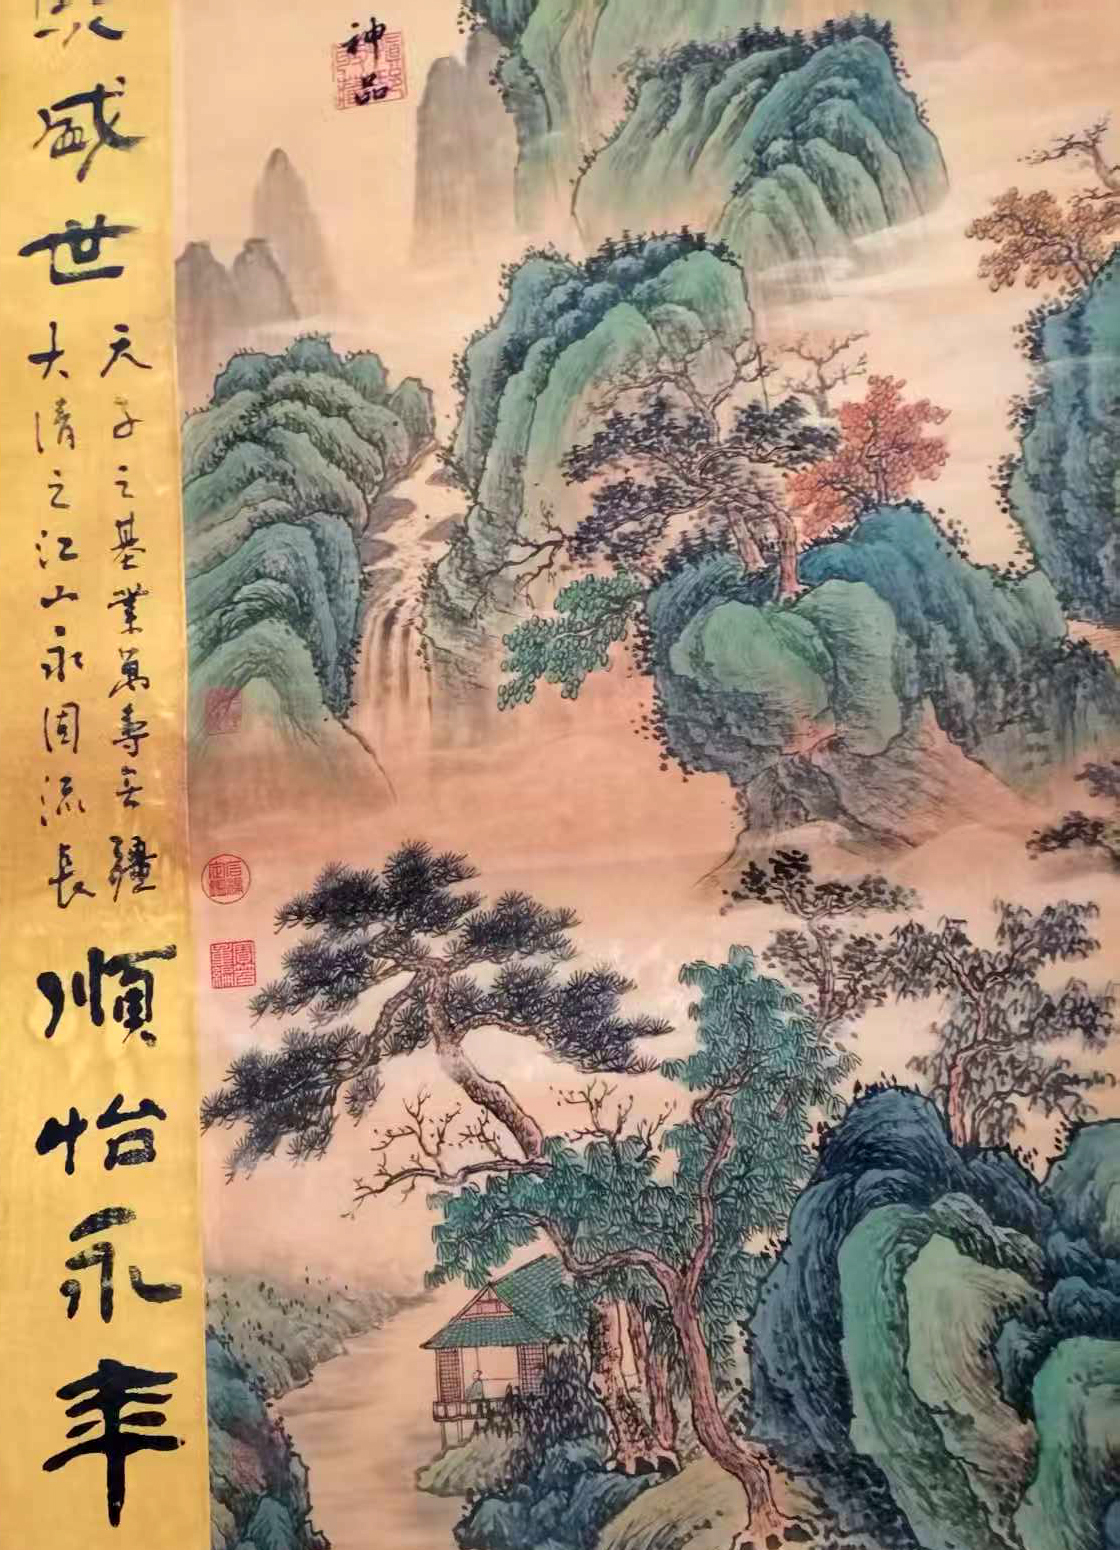 神品
盛世
天子之基業萬壽無疆
大清之江山永固流長
順怡永年